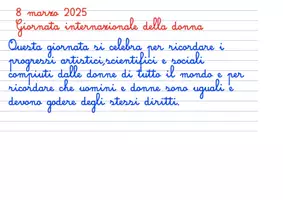 8 marzo 2025
Giornata internazionale della donna
Questa giornata si celebra per ricordare i
progressi artistici,scientifici e sociali
compiuti dalle donne di tutto il mondo e per
ricordare che uomini e donne sono uguali e
devono godere degli stessi diritti.